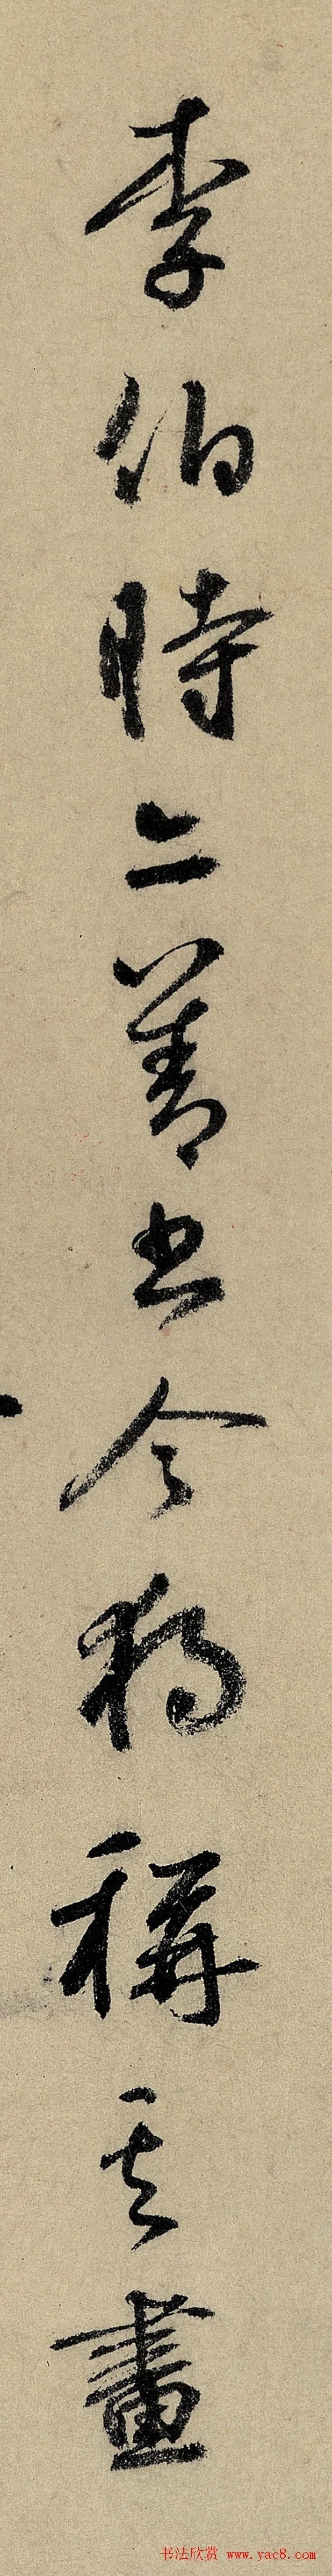 李伯時亦善書今獨稱其畫
书法欣赏 www.yac8.com